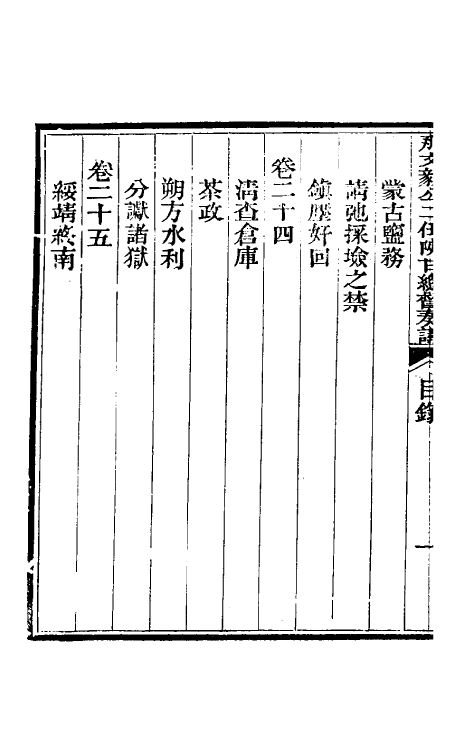 那文毅公二任陝甘總督奏議 目錄 一
蒙古鹽務
請弛採撿之禁
鎮壓奸回
卷二十四
清查倉庫
茶政
朔方水利
分讞諸獄
卷二十五
綏靖終南